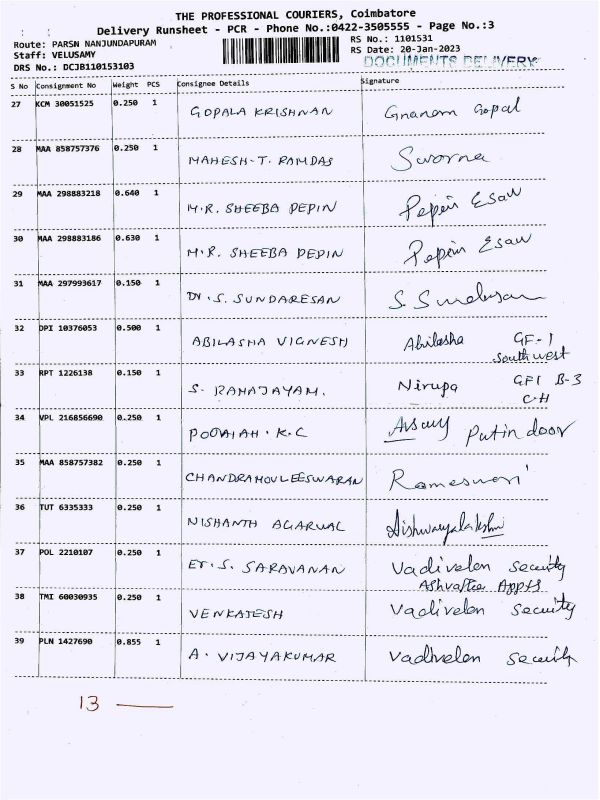 THE PROFESSIONAL COURIERS, Coimbatore
Delivery Runsheet - PCR - Phone No.:0422-3505555 - Page No.:3
Route: PARSN NANJUNDAPURAM RS No.: 1101531
Staff: VELUSAMY RS Date: 20-Jan-2023
DRS No.: DCJB110153103 DOCUMENTS DELIVERY
S No Consignment No Weight PCS Consignee Details Signature
27 KCM 30051525 0.250 1 GOPALA KRISHNAN Gnanam Gopal
28 MAA 858757376 0.250 1 MAHESH-T. RAMDAS Sworna
29 MAA 298883218 0.640 1 M.R. SHEEBA PEPIN Pepin Esau
30 MAA 298883186 0.630 1 M.R. SHEEBA PEPIN Pepin Esau
31 MAA 297993617 0.150 1 Dr. S. SUNDARESAN S.
32 DPI 10376053 0.500 1 ABILASHA VIGNESH Abilasha GF-1
South west
33 RPT 1226138 0.150 1 S. RAMAJAYAM. Nirupa GF1 B-3
C-H
34 VPL 216856690 0.250 1 POOVAIAH. K.C Put in door
35 MAA 858757382 0.250 1 CHANDRAMOULEESWARAN Rameswari
36 TUT 6335333 0.250 1 NISHANTH AGARWAL Aishwaryalakshmi
37 POL 2210107 0.250 1 ET. S. SARAVANAN Vadivelan Security
Appts
38 TMI 60030935 0.250 1 VENKATESH Vadivelan Security
39 PLN 1427690 0.855 1 A. VIJAYAKUMAR Vadivelan Security
13